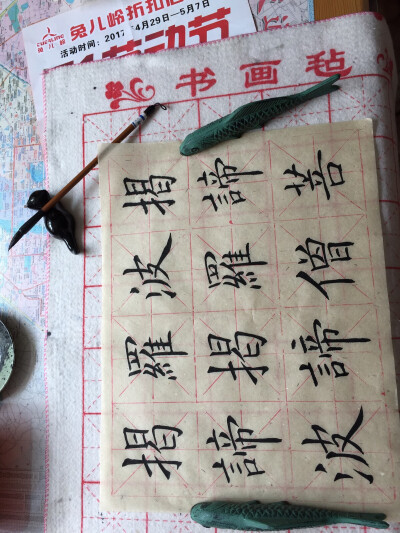 兔儿岭折扣
活动时间：2017年4月29日—5月7日
劳动节
书画毡
揭諦波
羅揭諦
波羅僧
揭諦菩